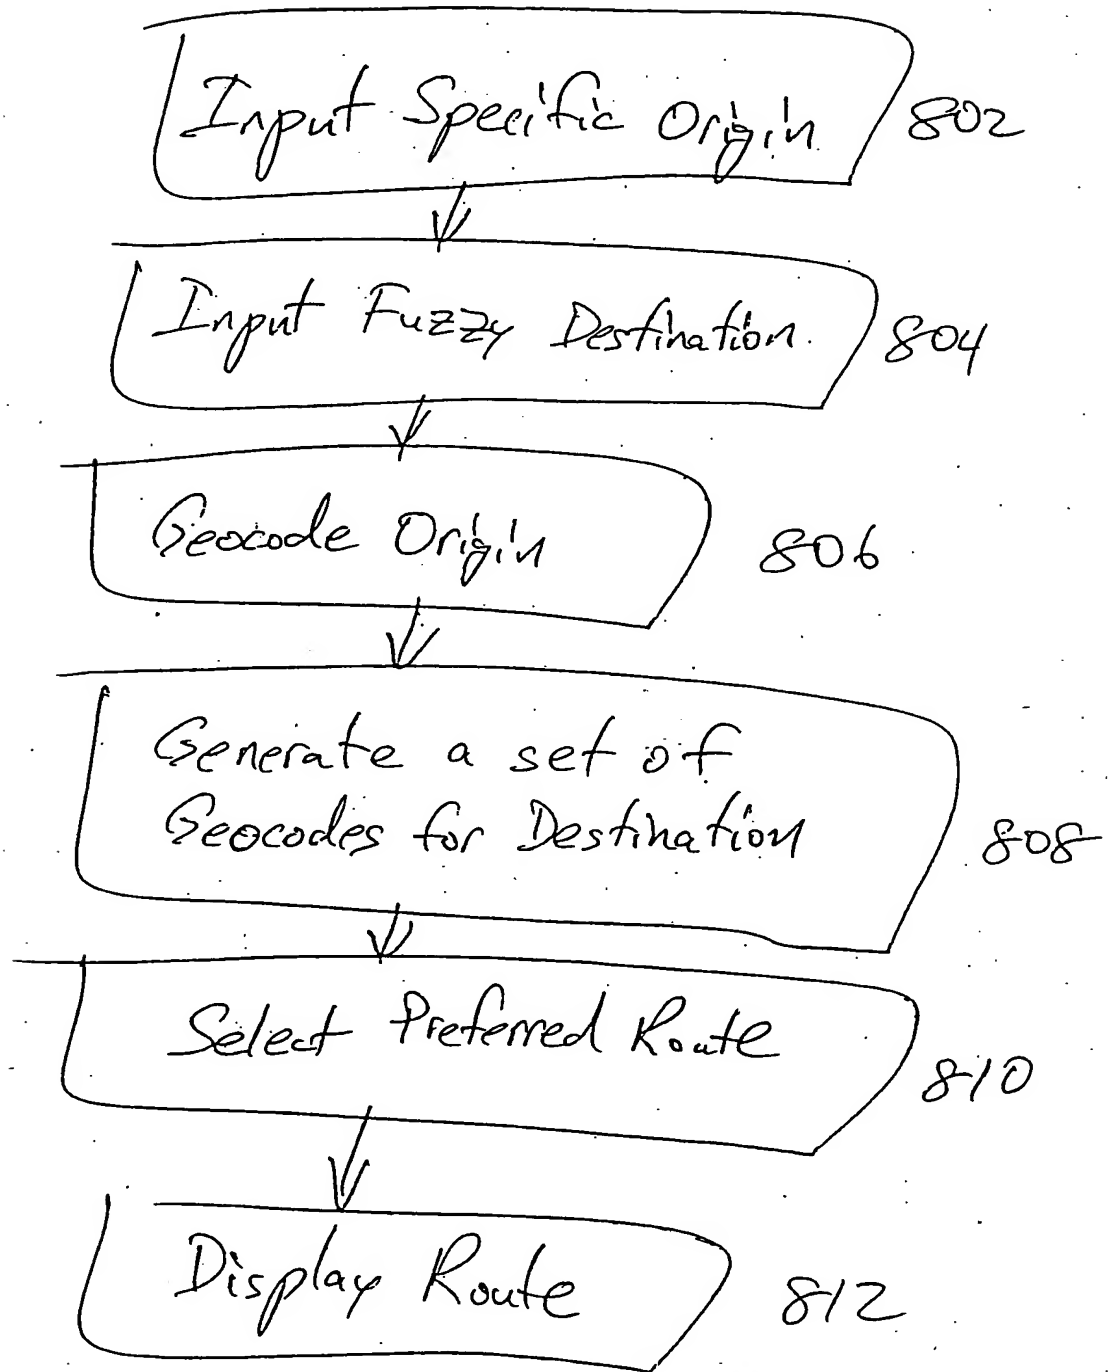 Input Specific Origin 802
Input Fuzzy Destination 804
Geocode Origin 806
Generate a set of
Geocodes for Destination 808
Select Preferred Route 810
Display Route 812